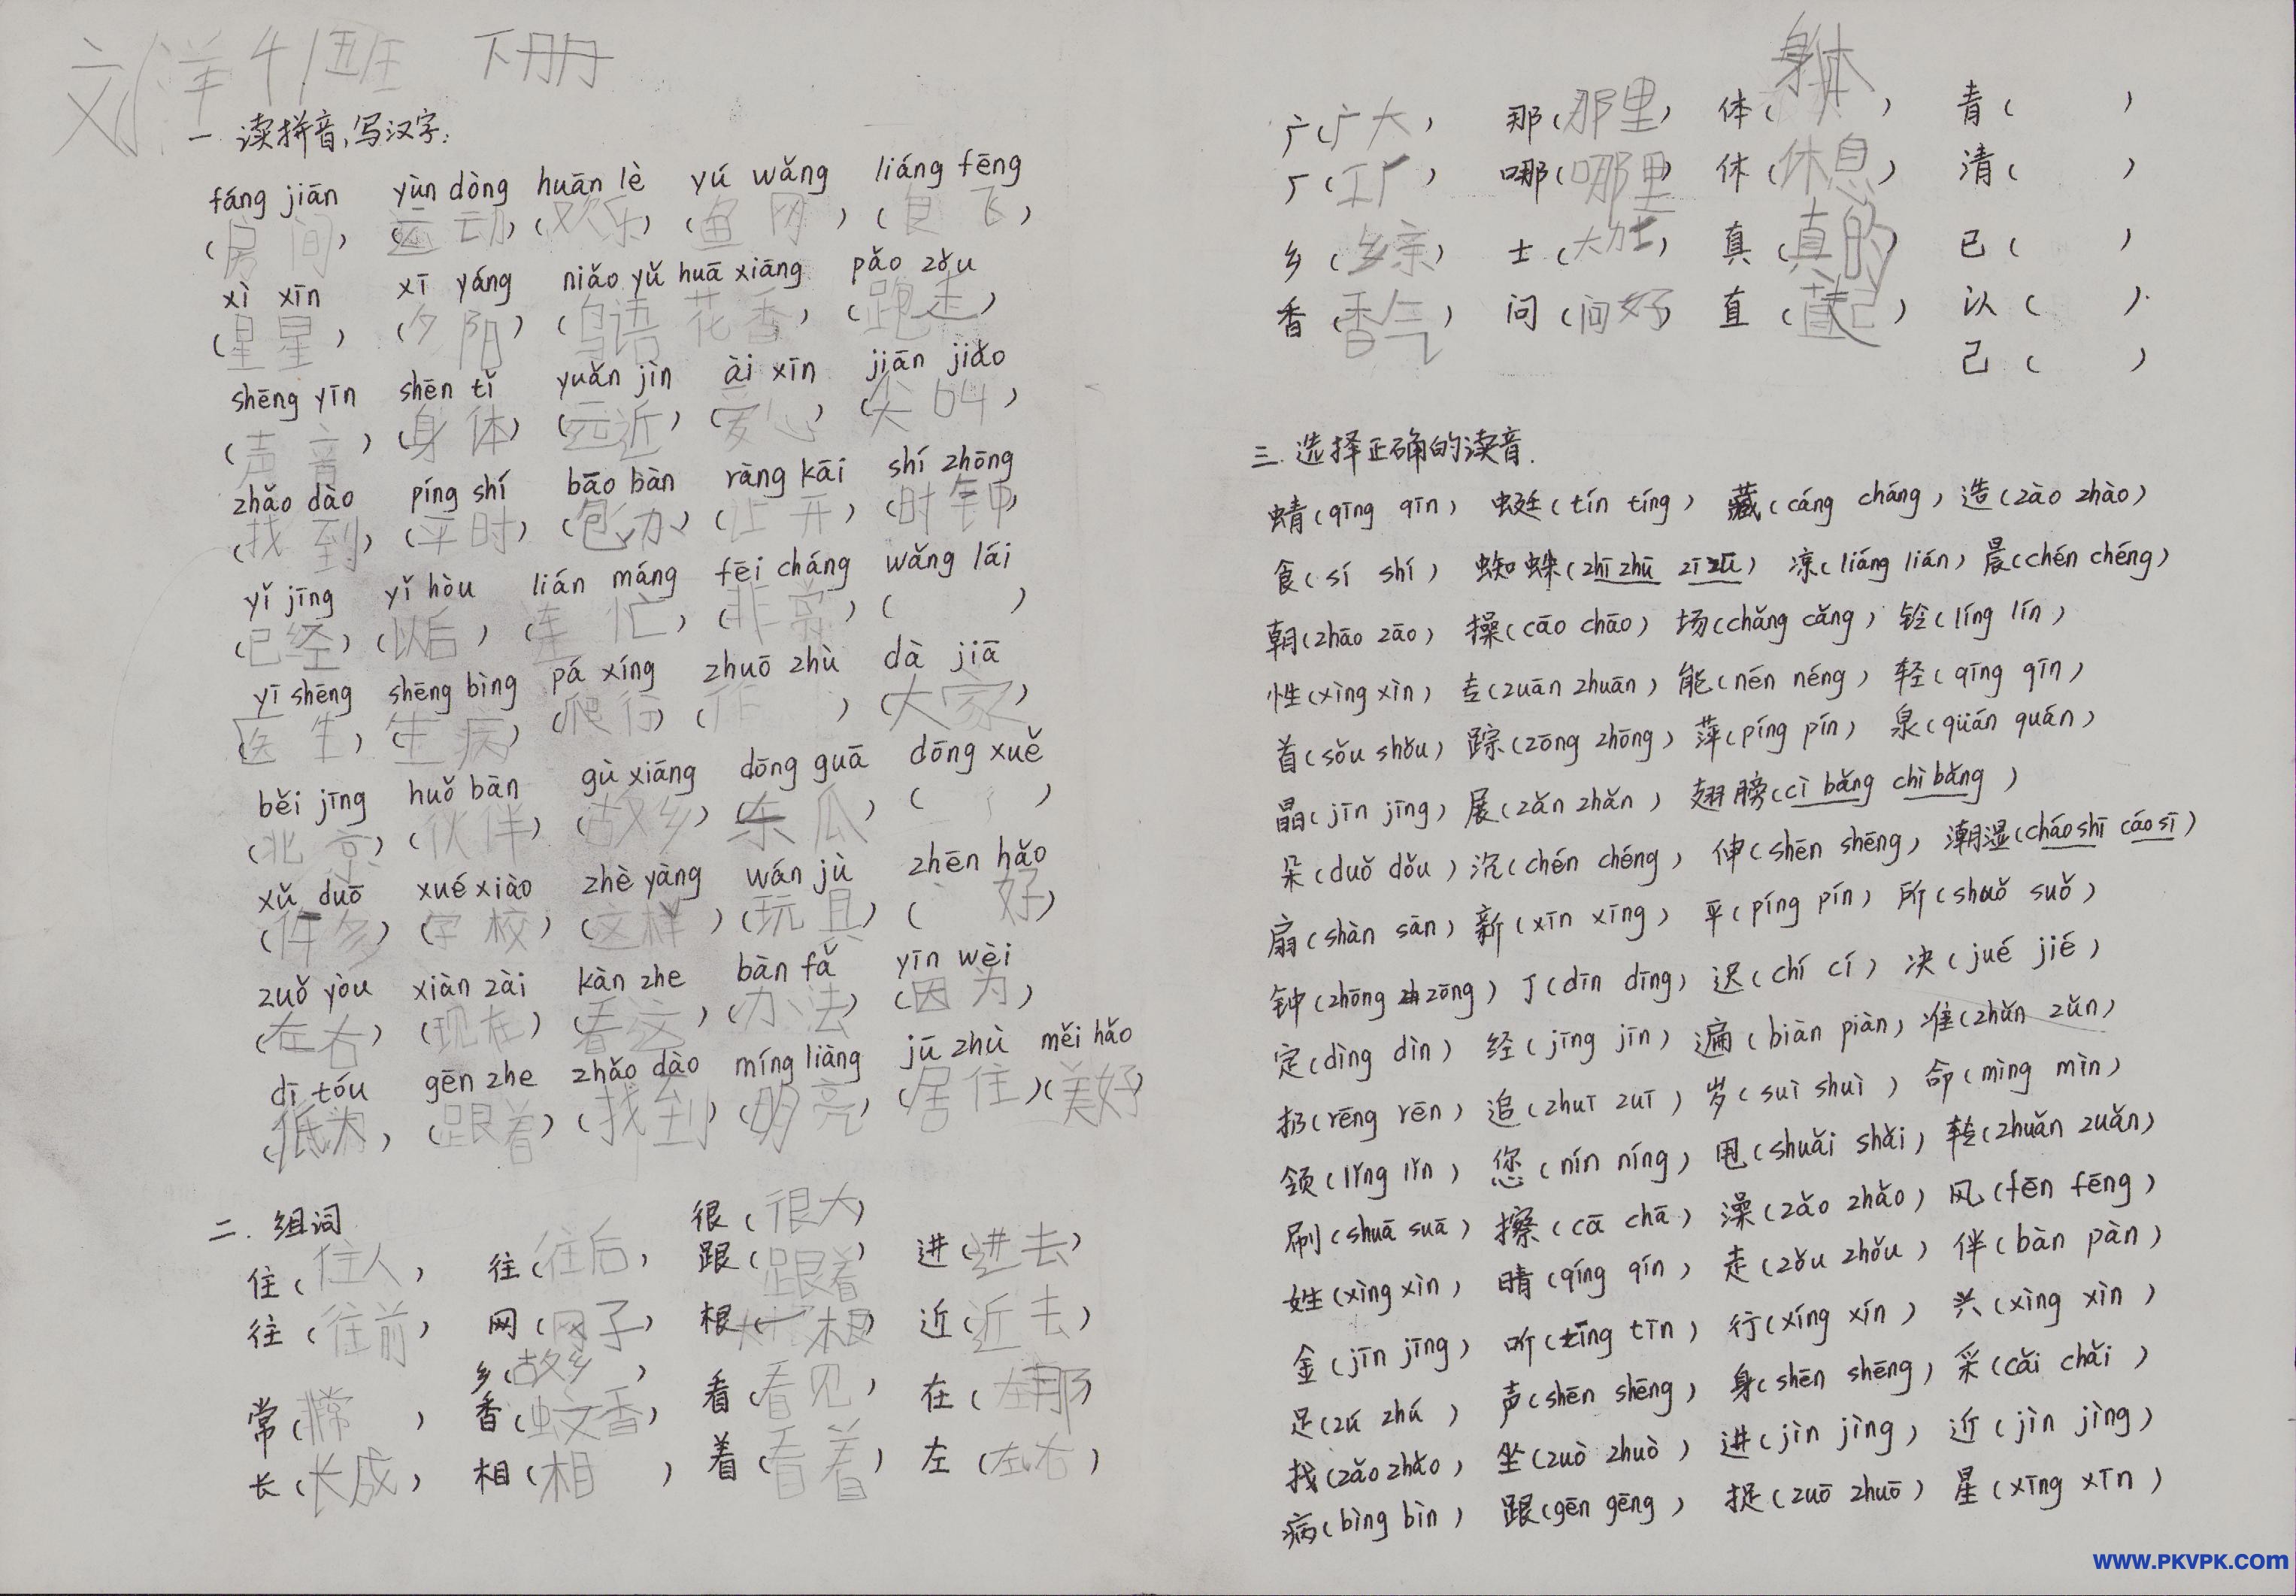 刘洋 4/班 下册
一 读拼音,写汉字:
fáng jiān yùn dòng huān lè yú wǎng liáng fēng
(房 间) (运 动) (欢 乐) (鱼 网) (良 飞)
xì xīn xī yáng niǎo yǔ huā xiāng pǎo zǒu
(星 星) (夕 阳) (鸟语 花 香) (跑 走)
shēng yīn shēn tǐ yuǎn jìn ài xīn jiān jiào
(声 音) (身 体) (远 近) (爱 心) (尖 叫)
zhǎo dào píng shí bāo bàn ràng kāi shí zhōng
(找 到) (平 时) (包 办) (让 开) (时 钟)
yǐ jīng yǐ hòu lián máng fēi cháng wǎng lái
(已 经) (以后) (连 忙) (非 常) ( )
yī shēng shēng bìng pá xíng zhuō zhù dà jiā
(医 生) (生 病) (爬 行) (作 ) (大 家)
běi jīng huǒ bàn gù xiāng dōng guā dōng xuě
(北 京) (伙 伴) (故 乡) (东 瓜) ( )
xǔ duō xué xiào zhè yàng wán jù zhēn hǎo
(许 多) (学 校) (这 样) (玩 具) ( 好)
zuǒ yòu xiàn zài kàn zhe bàn fǎ yīn wèi
(左 右) (现 在) (看 这) (办 法) (因 为)
dī tóu gēn zhe zhǎo dào míng liàng jū zhù měi hǎo
(低 ) (跟着) (找 到) (明 亮) (居 住) (美好)
二. 组词
很(很大)
住(住人) 往(往后) 跟(跟着) 进(进去)
往(往前) 网(网子) 根(根) 近(近去)
乡(故乡)
常( ) 香(蚊香) 看(看见) 在(在那)
长(长成) 相(相 ) 着(看着) 左(左右)
身体
广(广大) 那(那里) 体( ) 青( )
厂(工厂) 哪(哪里) 休(休息) 清( )
乡(乡亲) 士(大 ) 真(真的) 已( )
香(香气) 问(问好) 直( ) 以( )
己( )
三. 选择正确的读音.
蜻(qīng qīn) 蜓(tín tíng) 藏(cáng cháng) 造(zào zhào)
食(sí shí) 蜘蛛(zhī zhū zī zū) 凉(liáng lián) 晨(chén chéng)
朝(zhāo zāo) 操(cāo chāo) 场(chǎng cǎng) 铃(líng lín)
性(xìng xìn) 专(zuān zhuān) 能(nén néng) 轻(qīng qīn)
首(sǒu shǒu) 踪(zōng zhōng) 萍(píng pín) 泉(qüán quán)
晶(jīn jīng) 展(zǎn zhǎn) 翅膀(cì bǎng chì bǎng)
朵(duǒ dǒu) 沉(chén chéng) 伸(shēn shēng) 潮湿(cháo shī cáo sī)
扇(shàn sān) 新(xīn xīng) 平(píng pín) 所(shuǒ suǒ)
钟(zhōng zōng) 丁(dīn dīng) 迟(chí cí) 决(jué jié)
定(dìng dìn) 经(jīng jīn) 遍(biàn piàn) 准(zhǔn zǔn)
扔(rēng rēn) 追(zhuī zuī) 岁(suì shuì) 命(mìng mìn)
领(lǐng lǐn) 您(nín níng) 甩(shuǎi shǎi) 转(zhuǎn zuǎn)
刷(shuā suā) 擦(cā chā) 澡(zǎo zhǎo) 风(fēn fēng)
姓(xìng xìn) 晴(qíng qín) 走(zǒu zhǒu) 伴(bàn pàn)
金(jīn jīng) 听(tīng tīn) 行(xíng xín) 兴(xìng xìn)
足(zú zhú) 声(shēn shēng) 身(shēn shēng) 采(cǎi chǎi)
找(zǎo zhǎo) 坐(zuò zhuò) 进(jìn jìng) 近(jìn jìng)
病(bìng bìn) 跟(gēn gēng) 捉(zuō zhuō) 星(xīng xīn)
WWW.PKVPK.COM